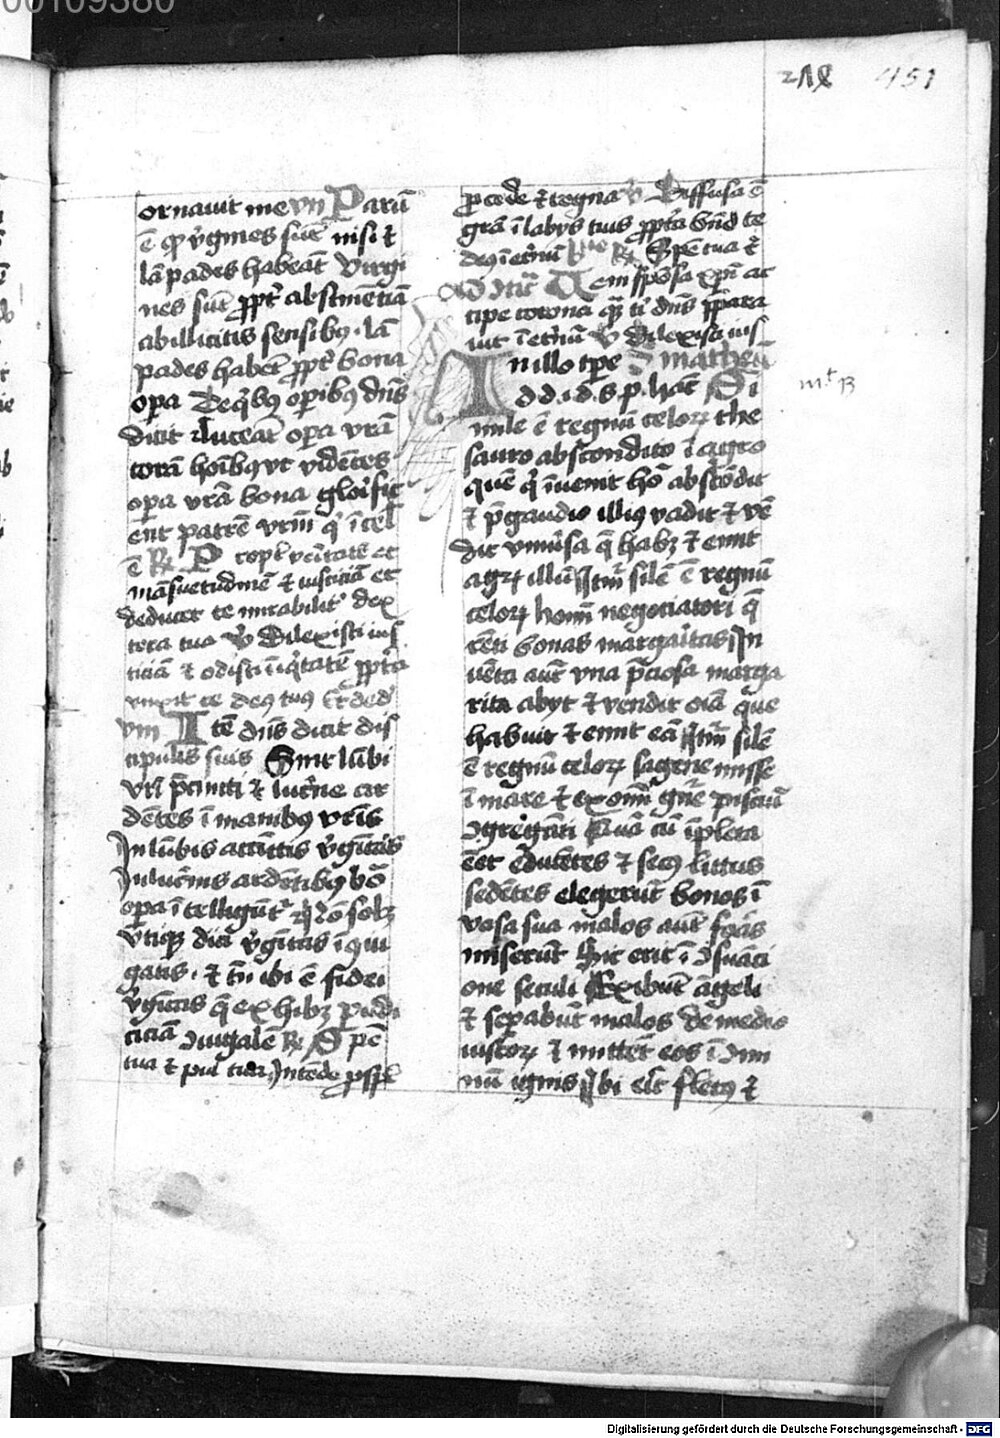 00109380
218 451
ornauit me vii Parū
ē qͥ v̓gines sūt nisi ⁊
lāpades habeāt Virgi
nes sūt ꝓpt̓ abstinētiā
ab illicitis sensibꝰ · lā
pades habēt ꝓpt̓ bona
oꝑa De qͥbꝰ oꝑibꝰ dn̄s
dicit Luceāt oꝑa vrā
corā hoībꝰ vt vidētes
oꝑa vrā bona gloīfic
ent patrē vrm̄ qͥ ī cel
ē ℟ Propt̓ v̓itatē et
māsuetudinē ⁊ iusticiā et
deducet te mirabilit̓ dex
tera tua ℣ Dilexisti ius
ticiā ⁊ odisti īiqͥtatē ꝓpt̓a
vnxit te deꝰ tuꝰ
viii Itē dn̄s dicit dis
cipulis suis Sint lūbi
vr̄i p̄cincti ⁊ luc̓ne ar
dētes ī manibꝰ vr̄is
In lūbis accītis v̓gītas
In luc̓nis ardētibꝰ bō
oꝑa ītelligūt̓ qͥ nō solū
vtiqꝫ dici v̓gītas
gatis · ⁊ tn̄ ibi ē fidei
v̓gītas q̄ exhibꝫ pudi
ticiā ↄiugalē ℟ Spē
tua ⁊ pul tua Intēde ꝓsꝑe
ꝓcede ⁊ regna ℣ Diffusa ē
grā ī labijs tuis ꝓpt̓a bn̄d te
deꝰ ī et̓nū ℟ Spē tua ⁊
sponsa xp̄i ac
cipe corona quā ti dn̄s p̄para
uit ī et̓nū ℣ Dilexisti ius
In illo tp̄e matheū
d. d. i. d. s. p. hāc Si
mile ē regnū celoꝝ the
sauro abscondito ī agro
quē qͥ īuenit hō abscōdit
⁊ p̄ gaudio illiꝰ vadit ⁊ vē
dit vniūsa q̄ habꝫ ⁊ emit
agrū illū Itm̄ silē ē regnū
celoꝝ homī negotiatori q̄
rēti bonas margaītas In
uēta aūt vna p̄ciosa marga
rita abijt ⁊ vendit oīa que
habuit ⁊ emit eā Itm̄ silē
ē regnū celoꝝ sagene misse
ī mare ⁊ ex omī gn̄e pisciū
ↄgregāti Quā cū īpleta
eēt educētes ⁊ secꝰ littus
sedētes elegerūt bonos ī
vasa sua malos aūt foās
miserūt Sic erit ī ↄsūati
one seculi Exibūt āgeli
⁊ seꝑabūt malos de medio
iustoꝝ ⁊ mittēt eos ī cami
nū ignis Ibi eīt fletꝰ ⁊
mt 13
Digitalisierung gefördert durch die Deutsche Forschungsgemeinschaft - DFG